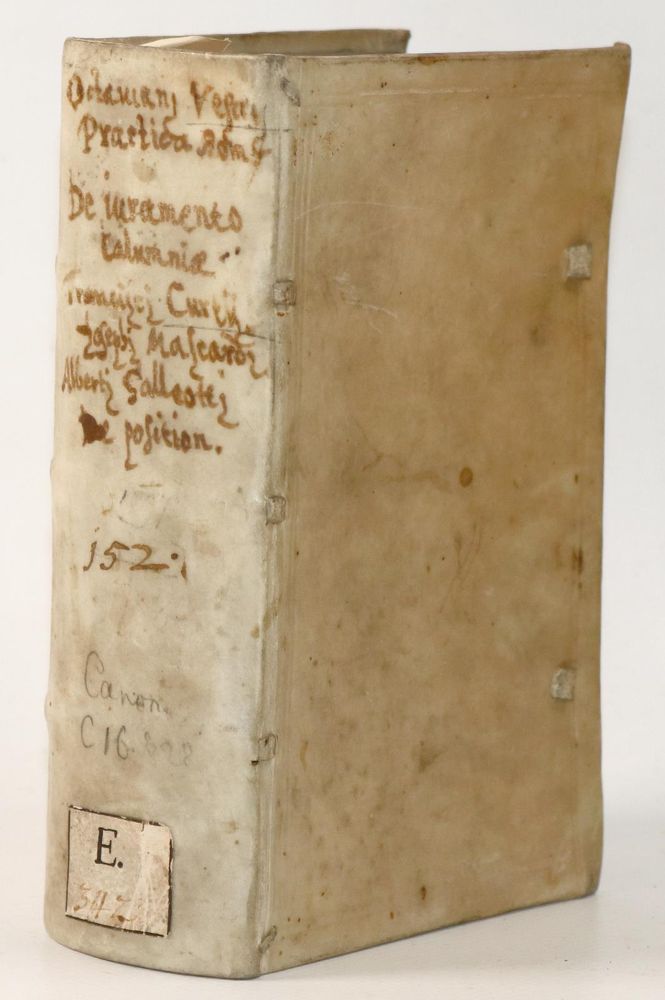 Octaviani Vestrij
Practica Rom
De iuramento
calumniæ
Francisci Curtij
Josephi Mascardi
Alberti Galleottij
De position.
152.
Canon.
C 16. 828
E.
347